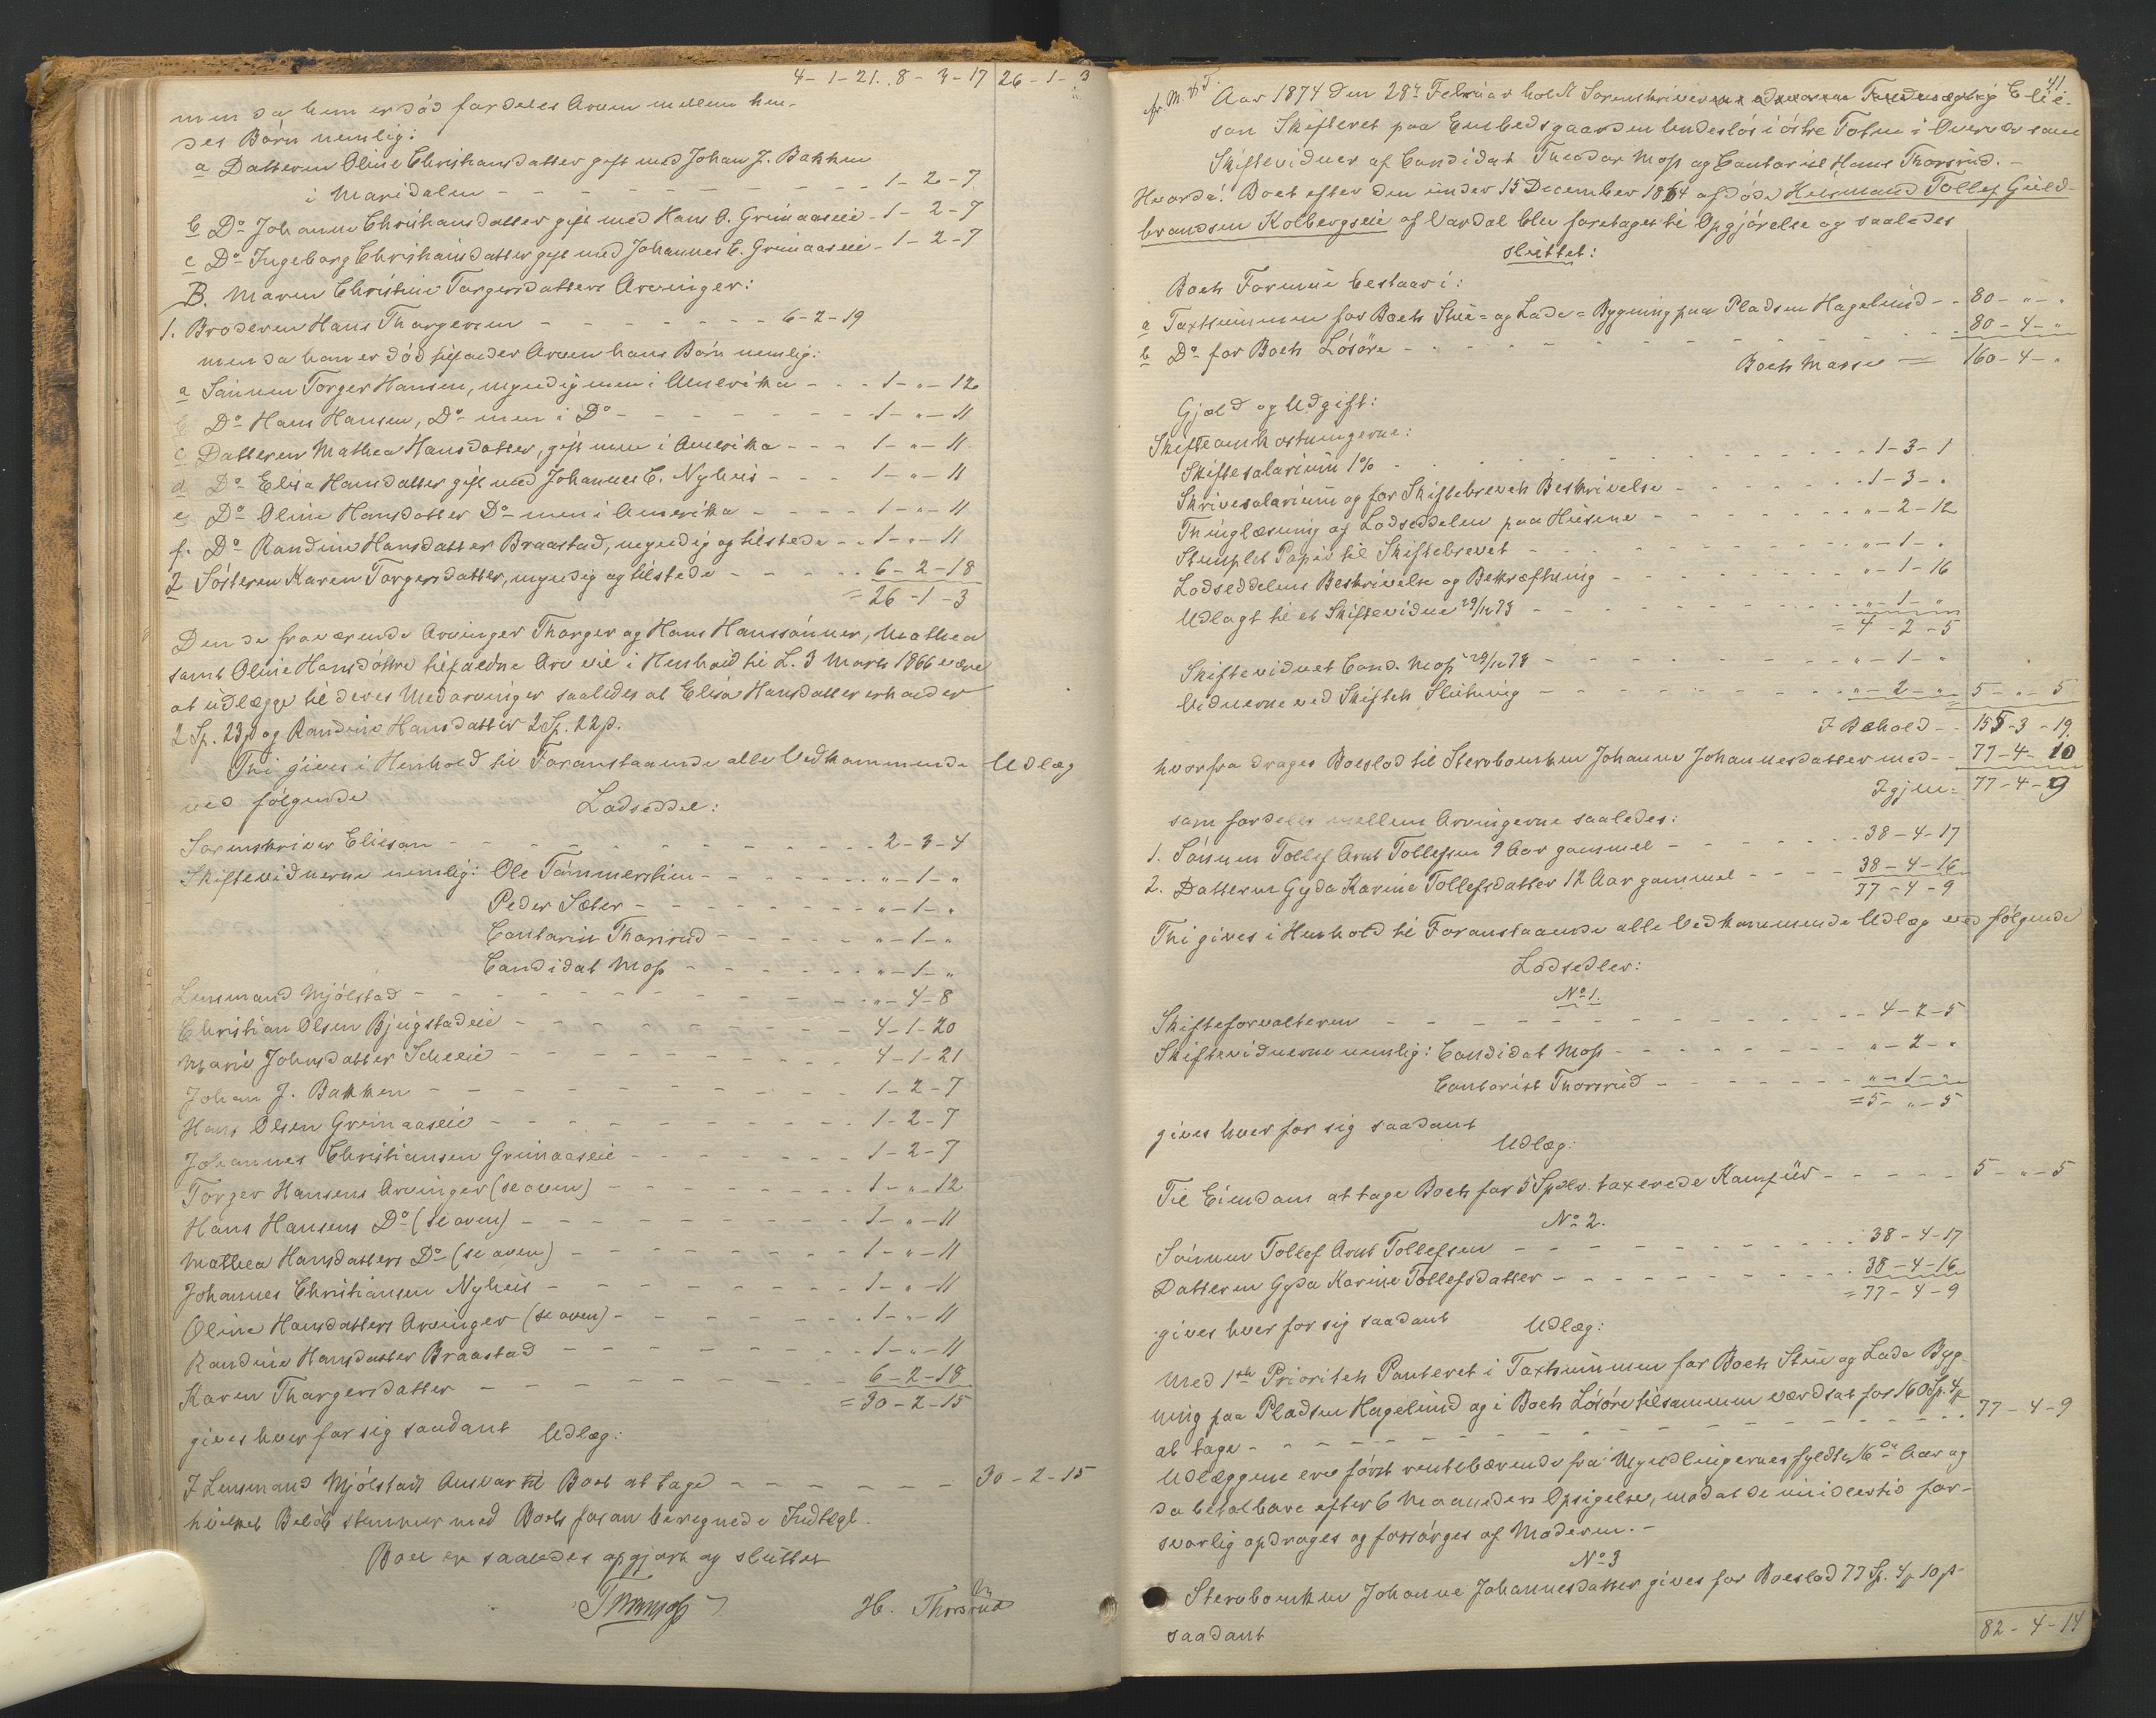 4-1-21. 8-3-17 26-1-3
men da hun er död fordeles Arven mellem hen-
des Börn nemlig:
a Datteren Oline Christiansdatter gift med Johan J. Bakken
i Maridalen - - - 1-2-7
b Do Johanne Christiansdatter gift med Hans O. Grimaaseie - 1-2-7
c Do Ingeborg Christiansdatter gift med Johannes C. Grimaaseie - 1-2-7
B. Maren Christine Torgersdatters Arvinger:
1. Broderen Hans Thorgersen - - - 6-2-19
men da han er död tilfalder Arven hans Börn nemlig:
a Sönnen Torger Hansen, myndig men i Amerika - - - 1-"-12
b Do Hans Hansen, Do men i Do - - - 1-"-11
c Datteren Mathea Hansdatter, gift men i Amerika - - - 1-"-11
d Do Elisa Hansdatter gift med Johannes C. Nyhus - - - 1-"-11
e Do Oline Hansdatter Do men i Amerika - - - 1-"-11
f. Do Randine Hansdatter Braastad, myndig og tilstede - - 1-"-11
2 Sösteren Karen Torgersdatter, myndig og tilstede - - - 6-2-18
= 26-1-3
Den de fraværende Arvinger Thorger og Hans Hanssönner, Mathea
samt Oline Hansdöttre tilfaldne Arv vil i Henhold til L. 3 Marts 1866 være
at udlægge til deres Medarvinger saaledes at Elisa Hansdatter erholder
2 Sp. 23 ß og Randine Hansdatter 2 Sp. 22 ß.
Thi gives i Henhold til Foranstaaende alle Vedkommende Udlæg
ved følgende
Lodseddel:
Sorenskriver Elieson - - - 2-3-4
Skiftevidnerne nemlig: Ole Tömmerstuen - - - "-1-"
Peder Sæter - - - "-1-"
Contorist Thorsrud - - - "-1-"
Candidat Moß - - - "-1-"
Lensmand Mjölstad - - - "-4-8
Christian Olsen Bjugstadeie - - - 4-1-20
Marie Johnsdatter - - - 4-1-21
Johan J. Bakken - - - 1-2-7
Hans Olsen Grimaaseie - - - 1-2-7
Johannes Christiansen Grimaaseie - - - 1-2-7
Torger Hansens Arvinger (se oven) - - - 1-"-12
Hans Hansens Do (se oven) - - - 1-"-11
Mathea Hansdatters Do (se oven) - - - 1-"-11
Johannes Christiansen Nyhus - - - 1-"-11
Oline Hansdatters Arvinger (se oven) - - - 1-"-11
Randine Hansdatter Braastad - - - 1-"-11
Karen Thorgersdatter - - - 6-2-18
= 30-2-15
gives hver for sig saadant Udlæg:
I Lensmand Mjölstads Ansvar til Boet at tage - - - 30-2-15
hvilket Belöb stemmer med Boets foran beregnede Indtægt.
Boet er saaledes opgjort og sluttet
H. Thorsrud
41
Aar 1874 den 28de Februar holdt Sorenskriver Elie-
son Skifteret paa Embedsgaarden Endeslös i östre Totn i Overvær som
Skiftevidner af Candidat Theodor Moß og Contorist Hans Thorsrud. -
Hvorda! Boet efter den under 15 December 1864 afdöde Huusmand Tollef Guld-
brandsen Kolbergseie af Vardal blev foretaget til Opgjörelse og saaledes
sluttet:
Boets Formue bestaar i:
a Taxtsummen for Boets Stue- og Lade-Bygning paa Pladsen Hagelund - - 80-"-"
b Do for Boets Lösöre - - - 80-4-"
Boets Masse = 160-4-"
Gjæld og Udgift:
Skifteomkostningerne:
Skiftesalarium 1% - - - 1-3-1
Skrivesalarium og for Skiftebrevets Beskrivelse - - - 1-3-"
Thinglæsning af Lodseddelen paa Husene - - - "-2-12
Stemplet Papir til Skiftebrevet - - - "-1-"
Lodseddelens Beskrivelse og Bekræftning - - - "-1-16
Udlagt til et Skiftevidne 29/12 73 - - - "-1-"
= 4-2-5
Skiftevidnet Cand. Moß 29/12 73 - - - "-1-"
Vidnerne ved Skiftets Slutning - - - "-2-" 5-"-5
I Behold - - 155-3-19.
hvorfra drages Boeslod til Stervboenken Johanne Johannesdatter med - - 77-4-10
Igjen = 77-4-9
som fordeles mellem Arvingerne saaledes:
1. Sönnen Tollef Arnt Tollefsen 9 Aar gammel - - - 38-4-17
2. Datteren Gyda Karine Tollefsdatter 12 Aar gammel - - - 38-4-16
77-4-9
Thi gives i Henhold til Foranstaaende alle Vedkommende Udlæg ved følgende
Lodsedler:
No 1.
Skifteforvalteren - - - 4-2-5
Skiftevidnerne nemlig: Candidat Moß - - - "-2-"
Contorist Thorsrud - - - "-1-"
= 5-"-5
gives hver for sig saadant
Udlæg:
Til Eiendom at tage Boets for 5 Spdlr. taxerede Kamfuur - - - 5-"-5
No 2.
Sönnen Tollef Arnt Tollefsen - - - 38-4-17
Datteren Gyda Karine Tollefsdatter - - - 38-4-16
= 77-4-9
gives hver for sig saadant Udlæg:
Med 1ste Prioritets Panteret i Taxtsummen for Boets Stue og Lade Byg-
ning paa Pladsen Hagelund og i Boets Lösöre tilsammen værdsat for 160 Sp. 4
at tage - - - 77-4-9
Udlæggene ere först rentebærende fra Myndlingernes fyldte 16de Aar og
da betalbare efter 6 Maaneders Opsigelse, mod at de imidlertid for-
svarlig opdrages og forsörges af Moderen. -
No 3
Stervboenken Johanne Johannesdatter gives for Boeslod 77 Sp. 4 10 ß
saadant
82-4-14